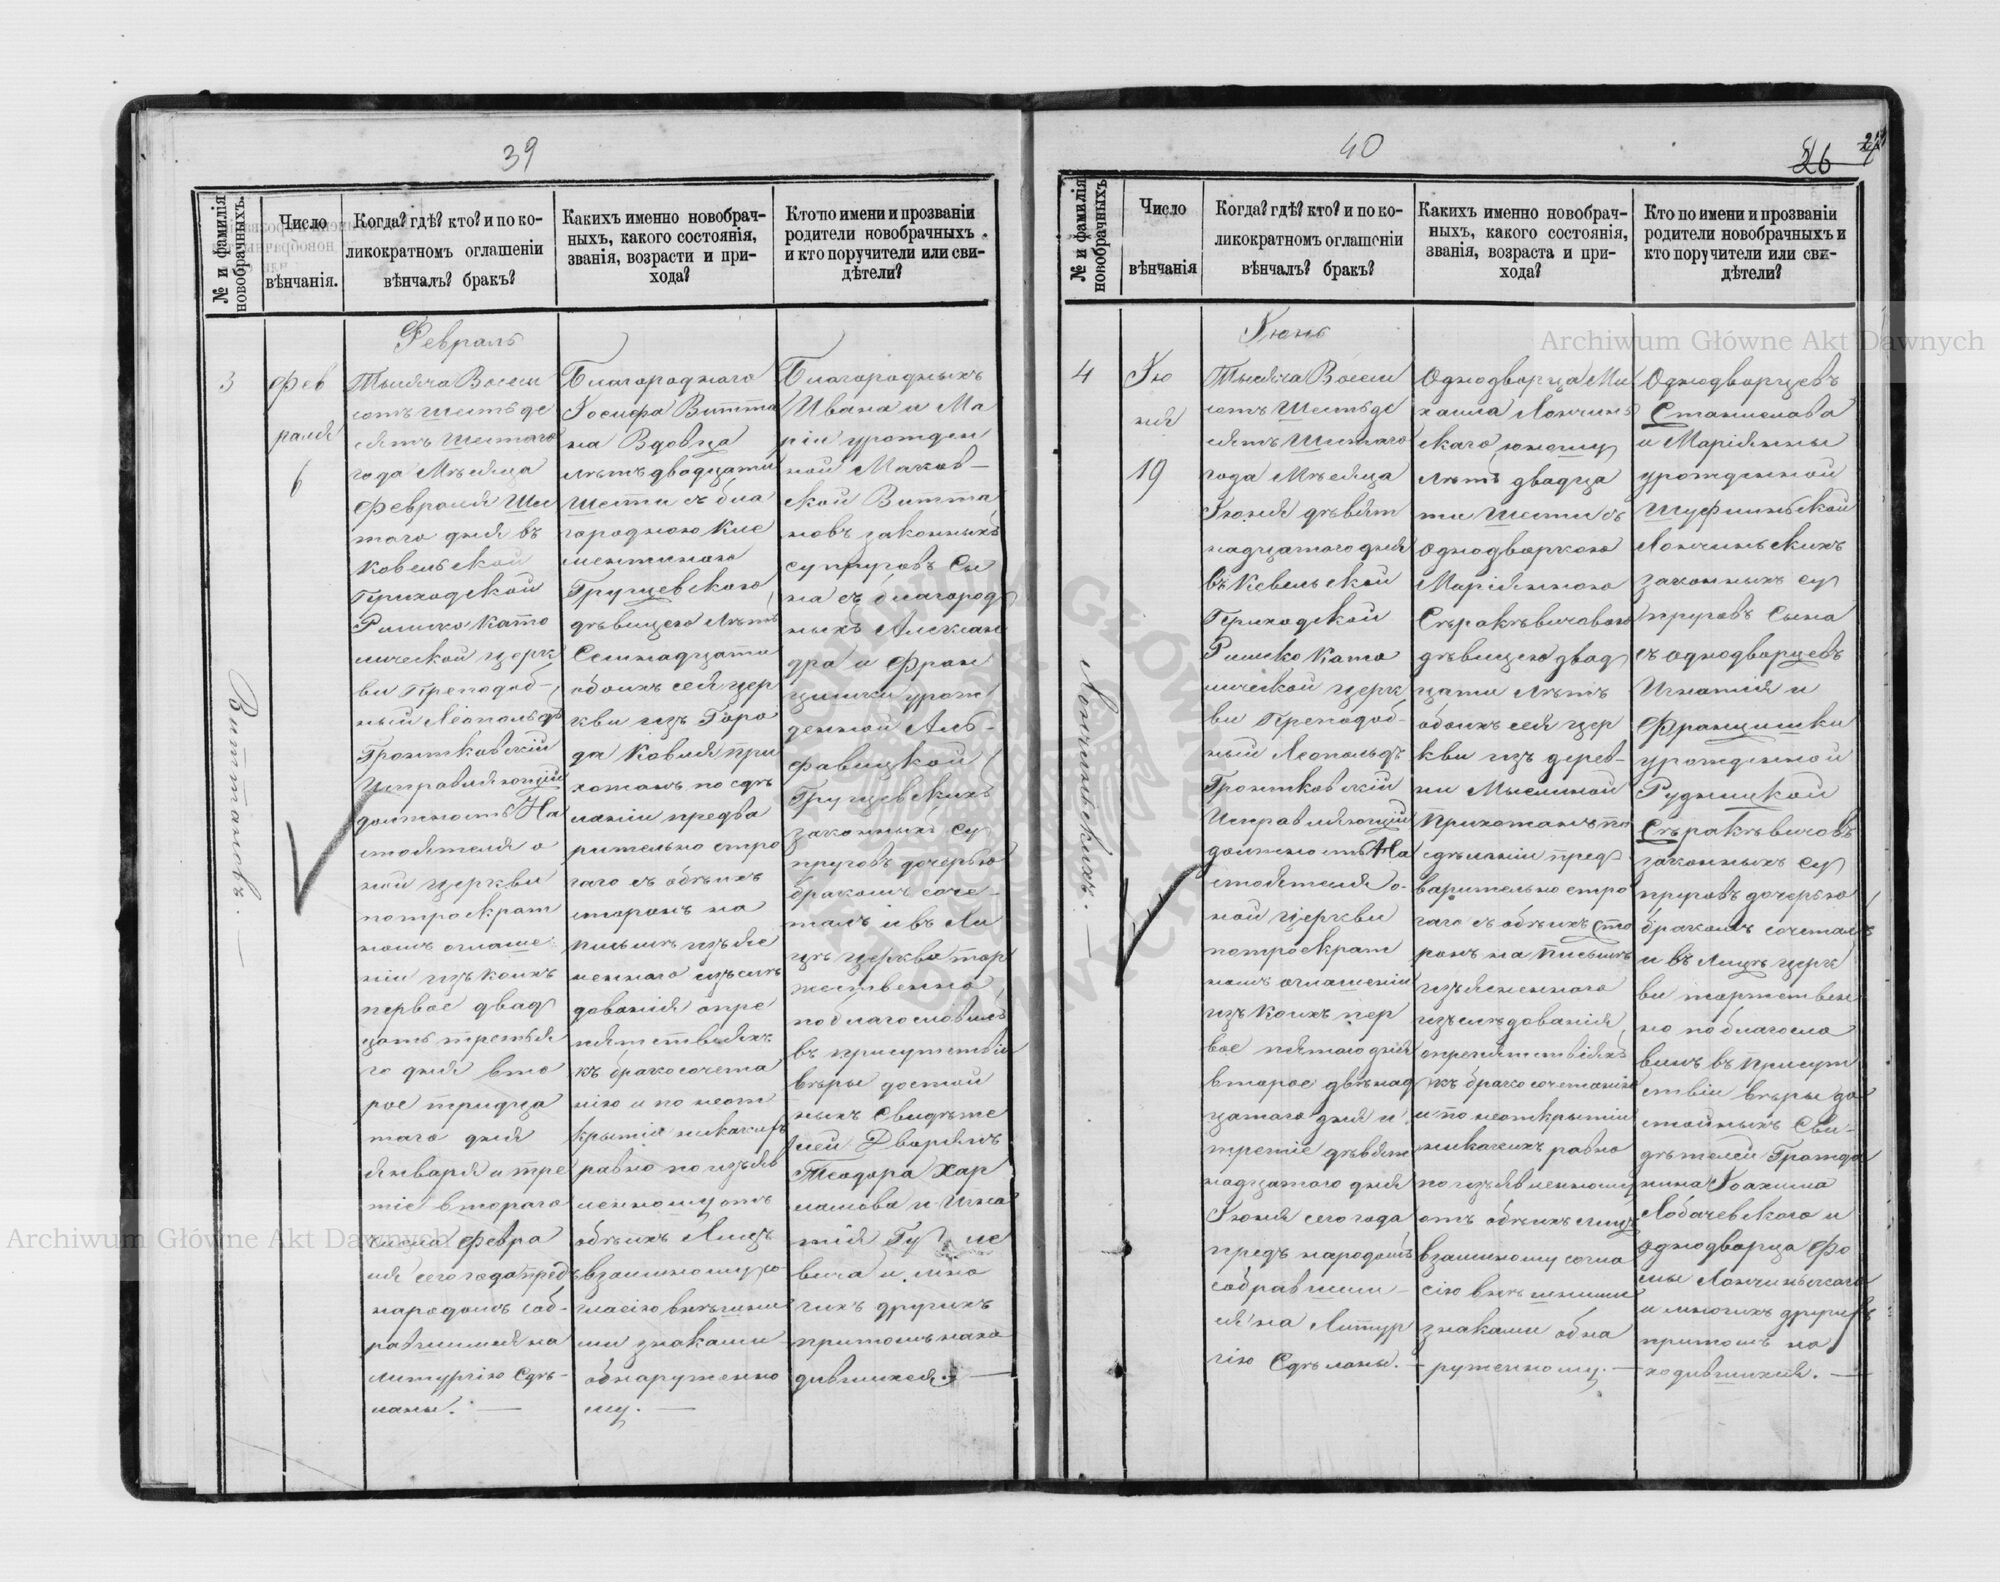 39
№ и фамилія новобрачныхъ.
Число
вѣнчанія.
Когда? гдѣ? кто? и по ко-
ликократномъ оглашеніи
вѣнчалъ? бракъ?
Какихъ именно новобрач-
ныхъ, какого состоянія,
званія, возрасти и при-
хода?
Кто по имени и прозваніи
родители новобрачныхъ
и кто поручители или сви-
дѣтели?
3
Виттановъ. —
Фев
раля
6
Февраль
Тысяча Восем
сотъ шестьде
сятъ шестаго
года Мѣсяца
Февраля Шес
таго дня въ
Ковельской
Приходской
Римско Като
лической церк
ви Преподоб-
ный Леопольдъ
Гронтковскій
Исправляющій
должность На
стоятеля о
ной церкви
потроекрат
номъ оглаше
ніи изъ коихъ
первое двад
цать третья
го дня вто
рое тридца
таго дня
января и тре
тіе втораго
числа Февра
ля сего года предъ
народомъ соб-
равшимся на
литургію Сдѣ-
ланы. —
Благороднаго
Іосифа Витта
на Вдовца
лѣтъ двадцати
шести съ бла
городною Кле
ментиною
Грущевскою
дѣвицею лѣтъ
Семнадцати
обоихъ сея цер
кви изъ Горо
да Ковля при
хожанъ по сдѣ
ланіи предва
рительно стро
гаго съ обѣихъ
сторонъ на
письмѣ изъяс
неннаго изъслѣ
дованія опре
пятствіяхъ
къ бракосочета
нію и по неот
крытіи никакихъ
равно по изъяв
ленному отъ
обѣихъ Лицъ
взаимному со
гласію внѣшни
ми знаками
обнаруженно
му. —
Благородныхъ
Ивана и Ма
ріи урожден
ной Маков-
ской Витта
новъ законныхъ
супруговъ Сы
на съ благород
ныхъ Алексан
дра и Фран
цишки урож
денной Аль-
фавицкой
Грущевскихъ
законныхъ су
пруговъ дочерью
бракомъ соче-
талъ и въ Ли
цѣ церкви тор
жественно
поблагословилъ
въ присутствіи
вѣры достой
ныхъ Свидѣте
лей Дворянъ
Теодора Хар
ламова и Игна
тія
вича и мно
гихъ другихъ
притомъ нахо
дившихся. —
40
26
№ и фамилія новобрачныхъ.
Число
вѣнчанія
Когда? гдѣ? кто? и по ко-
ликократномъ оглашеніи
вѣнчалъ? бракъ?
Какихъ именно новобрач-
ныхъ, какого состоянія,
званія, возраста и при-
хода?
Кто по имени и прозваніи
родители новобрачныхъ и
кто поручители или сви-
дѣтели?
4
Лончинскихъ. —
Ію
ня
19
Іюнь
Тысяча Восем
сотъ Шестьде
сятъ Шестаго
года Мѣсяца
Іюня дѣвят
надцатого дня
въ Ковельской
Приходской
Римско Като
лической церк
ви Преподоб-
ный Леопольдъ
Гронтковскій
Исправляющій
должность На
стоятеля о-
ной Церкви
потроекрат
номъ оглашеніи
изъ коихъ пер
вое пятаго дня
второе двѣнад
цатаго дня и
третіе дѣвят
надцатого дня
Іюня сего года
предъ народомъ
собравшим-
ся на Литур
гію Сдѣланы. —
Однодворца Ми
хаила Лончинь
скаго юношу
лѣтъ двадца
ти шести съ
однодворкою
Маріянною
Сѣракѣвичовою
дѣвицею двад
цати лѣтъ
обоихъ сея цер
кви изъ дерев-
ни Мысиной
Прихожанъ по
сдѣланіи пред
варительно стро
гаго съ обѣихъ сто
ронъ на письмѣ
изъясненнаго
изъслѣдованія
опрепятствіяхъ
къ бракосочетанію
и по неоткрытіи
никакихъ равно
по изъявленному
отъ обѣихъ лицъ
взаимному согла
сію внѣшними
знаками обна
руженному. —
Однодворцевъ
Станислава
и Маріянны
урожденной
Шуфлинской
Лончинскихъ
законныхъ су
пруговъ Сына
съ однодворцевъ
Игнатія и
Францишки
урожденной
Рудницкой
Сѣракѣвичовъ
законныхъ су
пруговъ дочерью
бракомъ сочеталъ
и въ Лицѣ церк
ви торжествен
но поблагосло
вилъ въ присут
ствіи вѣры до
стойныхъ Сви-
дѣтелей Гражда
нина Іоахима
Лобачевскаго и
однодворца Фо
мы Лончиньскаго
и многихъ другихъ
притомъ на
ходившихся. —
Archiwum Główne Akt Dawnych
Archiwum Główne Akt Dawnych